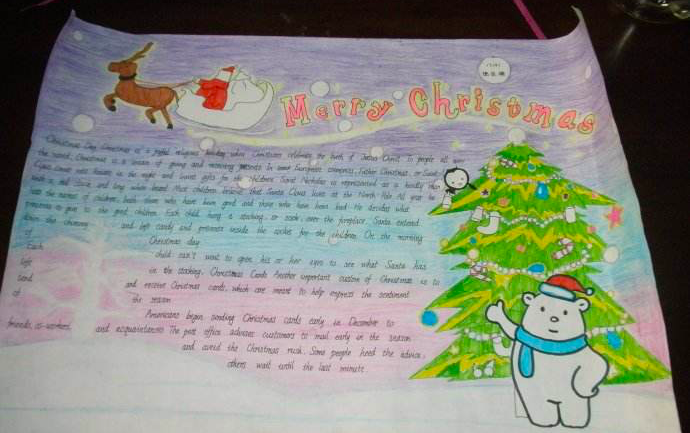 Merry Christmas
Christmas Day Christmas is a joyful religious holiday when Christians celebrate the birth of Jesus Christ. To people all over
the world, Christmas is a season of giving and receiving presents. In some European countries, Father Christmas, or Saint
comes into houses in the night and leaves gifts for the children. Saint Nicholas is represented as a kindly man
with a red cloak and long white beard. Most children believe that Santa Claus lives at the North Pole All year he
lists the names of children, both those who have been good and those who have been bad. He decides what
presents to give to the good children. Each child hung a stocking, or sock, over the fireplace. Santa entered
down the chimney and left candy and presents inside the socks for the children. On the morning
of Christmas day
Each child can't wait to open his or her eyes to see what Santa has
left in the stocking. Christmas Cards Another important custom of Christmas is to
send and receive Christmas cards, which are meant to help express the sentiment
of the season
Americans begin sending Christmas cards early in December to
friends, co-workers, and acquaintances The post office advises customers to mail early in the season
and avoid the Christmas rush. Some people heed the advice,
others wait until the last minute